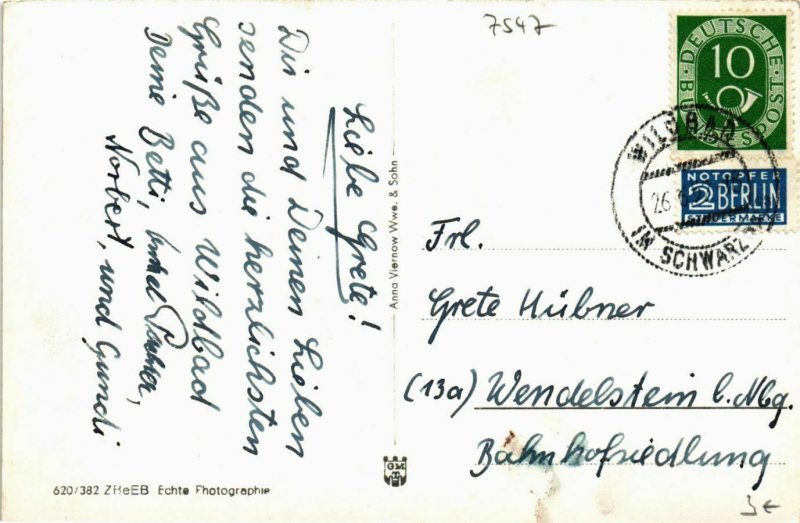 7547
Liebe Grete!
Dir und Deinen Lieben
senden die herzlichsten
Grüße aus Wildbad
Deine Betti,
Norbert, und Gundi
Anna Viernow Wwe. & Sohn
GM
620/382 ZReEB Echte Photographie
DEUTSCHE BUNDESPOST
10
NOTOPFER
2 BERLIN
STEUERMARKE
WILDBAD
26.
IM SCHWARZW
Frl.
Grete Hübner
(13a) Wendelstein b. Nbg.
Bahnhofsiedlung
3€